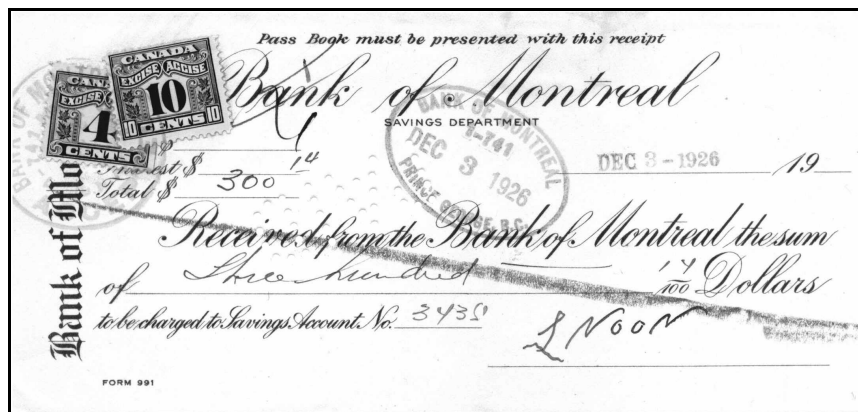 Pass Book must be presented with this receipt
Bank of Montreal
SAVINGS DEPARTMENT
CANADA
EXCISE ACCISE
10 10 10
CENTS
EXCISE
4
CENTS
BANK OF MONTREAL
DEC 3 1926
PRINCE GEORGE, B.C.
DEC 3 - 1926 19
Interest $ 14
Total $ 300
Received from the Bank of Montreal the sum
of Three hundred 14/100 Dollars
to be charged to Savings Account No.
L NOON
Bank of Mo
FORM 991